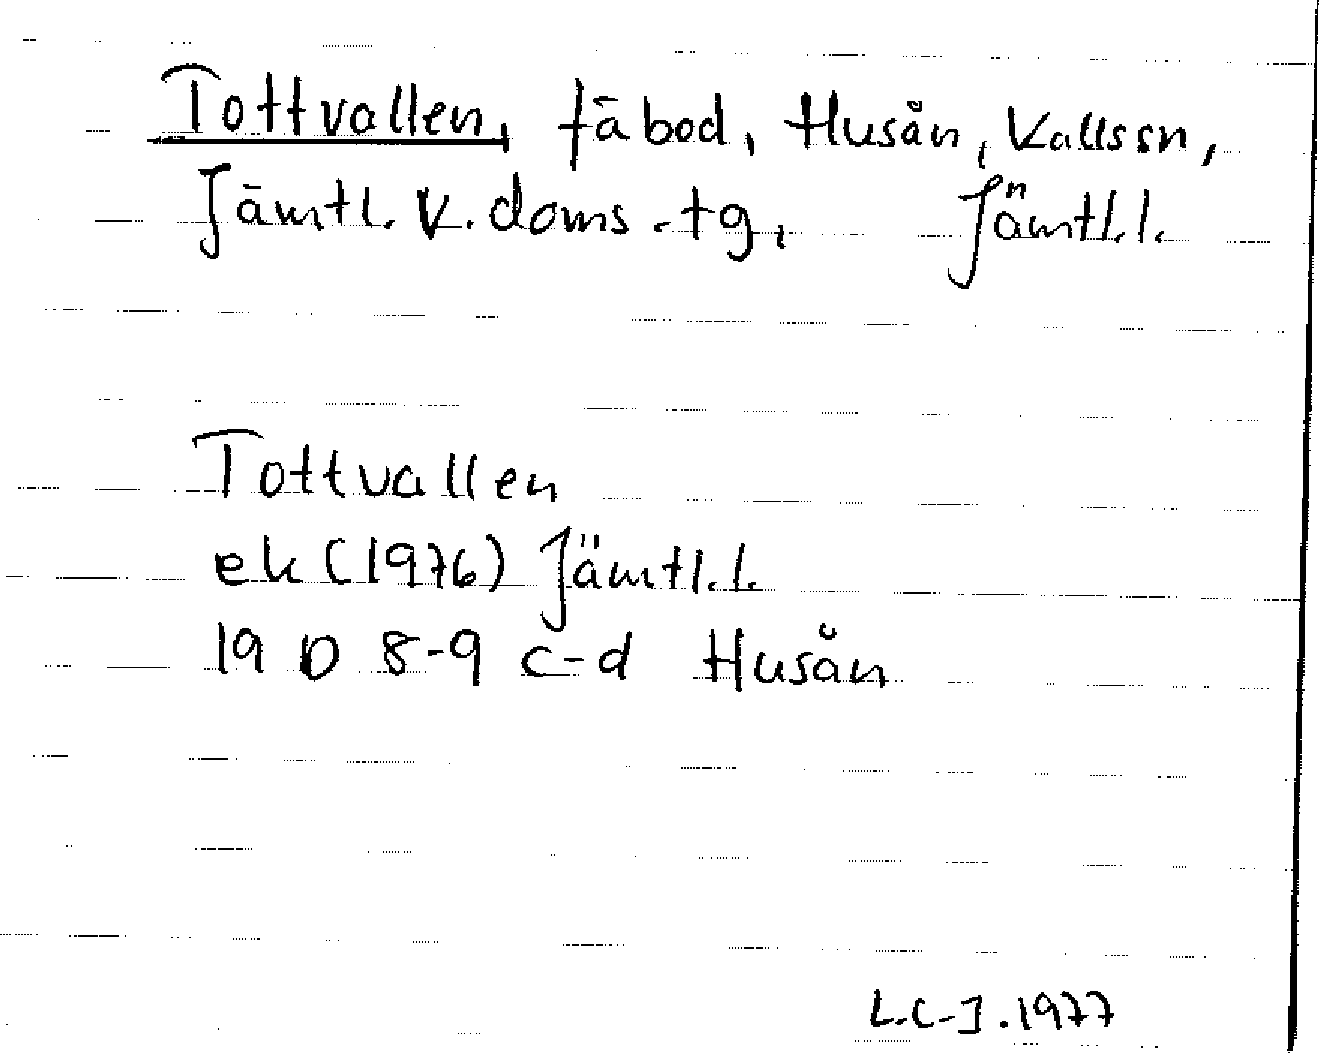 Tottvallen, fäbod, Husån, Kalls sn,
Jämtl. v. doms.tg, Jämtl.l.
Tottvallen
ek (1976) Jämtl.l.
19 D 8-9 c-d Husån
L.C-J. 1977